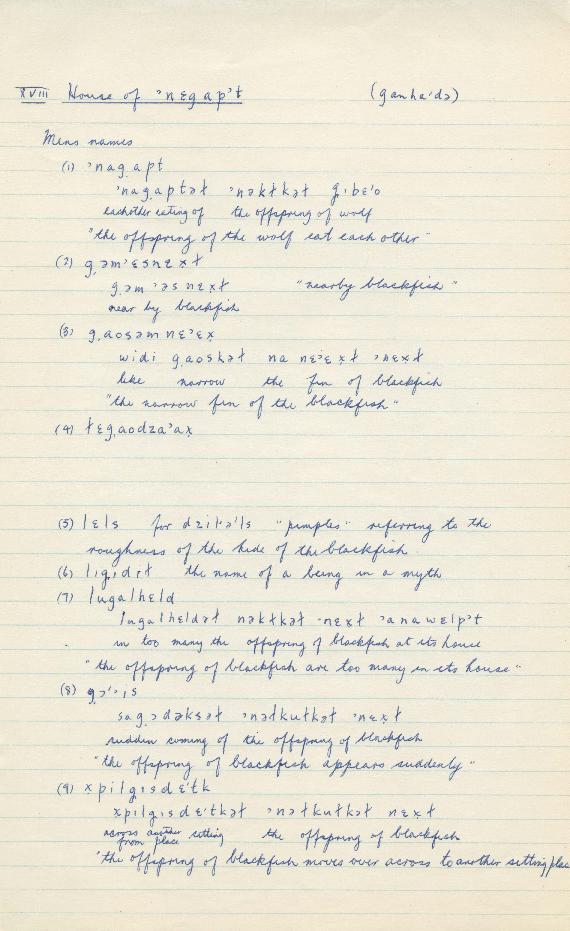 XVIII House of 'nɛgap't (ganha'də)
Mens names
(1) 'nagapt
'nagaptəɫ 'nəkɫkəɫ gıbɛ'o
eachother eating of the offspring of wolf
"the offspring of the wolf eat each other"
(2) gəm'ɛsnɛxɫ
gəm 'əs nɛxɫ "nearby blackfish"
near by blackfish
(3) gaosəmnɛ'ɛx
widi gaoskəɫ na nɛ'ɛxɫ 'nɛxɫ
like narrow the fin of blackfish
"the narrow fin of the blackfish"
(4) ɫɛgaodza'ax
(5) lɛls for "pimples" referring to the
roughness of the hide of the blackfish.
(6) the name of a being in a myth
(7) lugalhɛld
lugalhɛldəɫ nəkɫkəɫ nɛxɫ 'anawɛlp't
in too many the offspring of blackfish at its house
"the offspring of blackfish are too many in its house"
(8)
sagɔdəksəɫ 'nəɫkuɫkəɫ 'nɛxɫ
sudden coming of the offspring of blackfish
"the offspring of blackfish appears suddenly"
(9) xpilgısdɛ'tk
xpilgısdɛ'tkəɫ 'nəɫkuɫkəɫ nɛxɫ
across another sitting the offspring of blackfish
from place
"the offspring of blackfish moves over across to another sitting plac